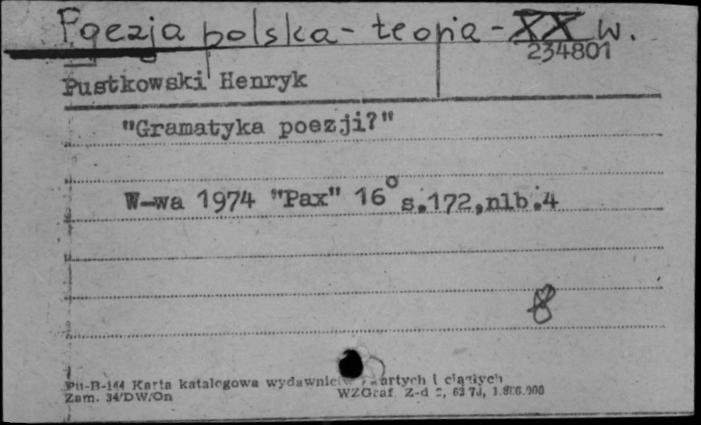 Poezja polska - teoria - XX w.
234801
Pustkowski Henryk
"Gramatyka poezji?"
W-wa 1974 "Pax" 16° s.172,nlb.4
8
Pu-B-144 Karta katalogowa wydawnictw zwartych i ciągłych
Zam. 34/DW/On WZGraf. Z-d